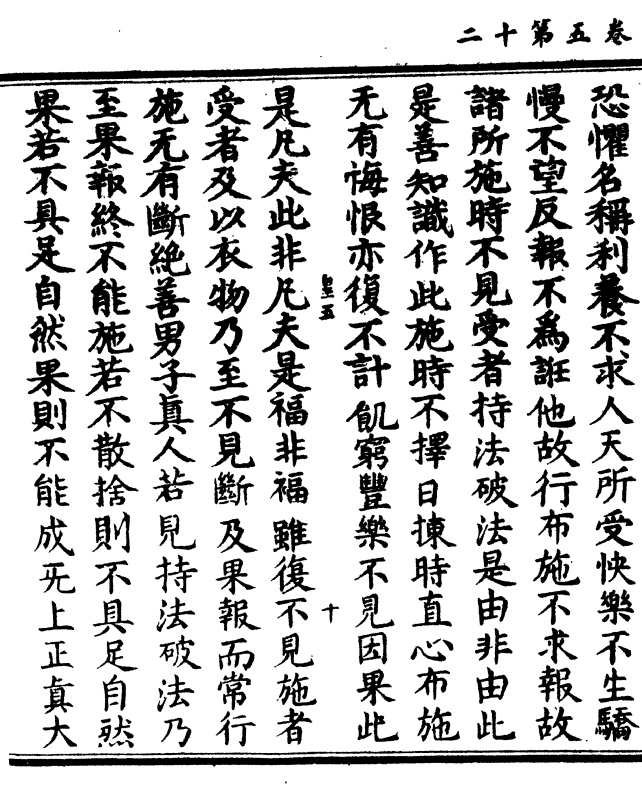 卷五第十二
恐懼名稱利養不求人天所受快樂不生驕
慢不望反報不為誑他故行布施不求報故
諸所施時不見受者持法破法是由非由此
是善知識作此施時不擇日揀時直心布施
无有悔恨亦復不計飢窮豐樂不見因果此
皇五
十
是凡夫此非凡夫是福非福雖復不見施者
受者及以衣物乃至不見斷及果報而常行
施无有斷絶善男子真人若見持法破法乃
至果報終不能施若不散捨則不具足自然
果若不具足自然果則不能成旡上正真大